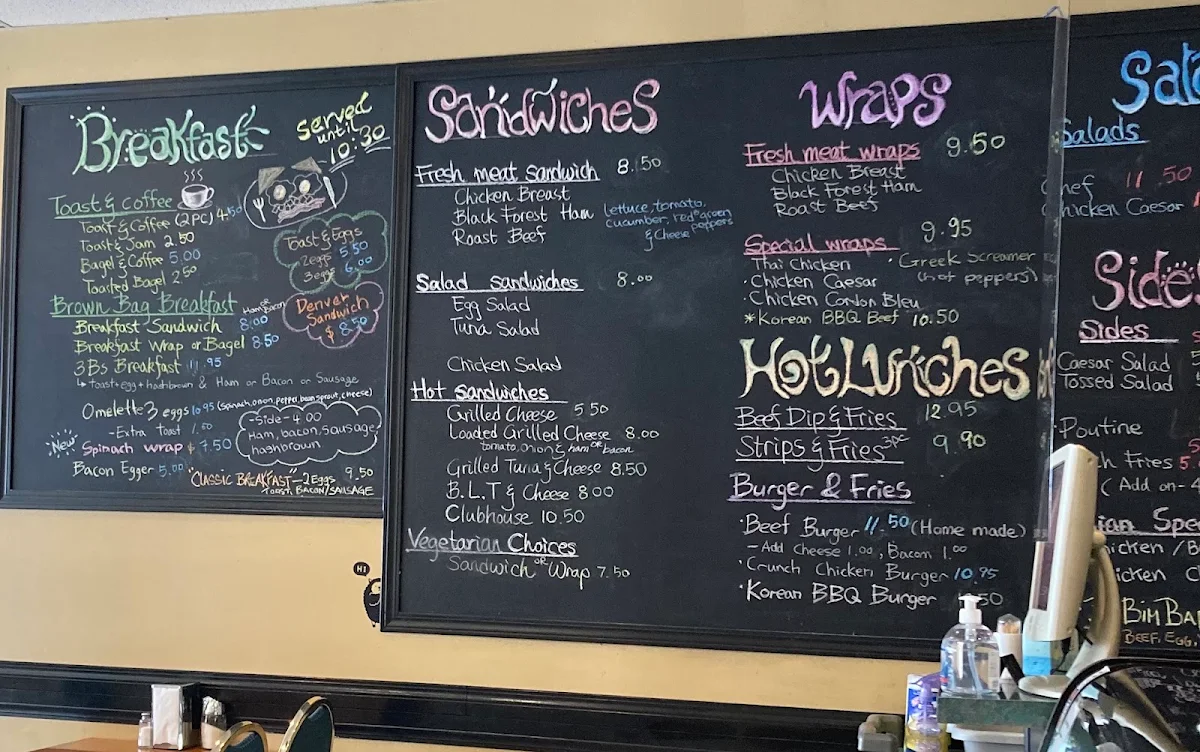 Breakfast
served
until
10:30
Toast & Coffee
Toast & Coffee (2PC) 4.50
Toast & Jam 2.50
Bagel & Coffee 5.00
Toasted Bagel 2.50
Toast & Eggs
2eggs 5.50
3eggs 6.00
Brown Bag Breakfast
Ham or Bacon
Breakfast Sandwich 8.00
Breakfast Wrap or Bagel 8.50
3Bs Breakfast 11.95
toast+egg+hashbrown & Ham or Bacon or Sausage
Denver
Sandwich
$ 8.50
Omelette 3 eggs 10.95 (Spinach, onion, pepper, bean sprout, cheese)
-Extra toast 1.50
"New" Spinach wrap $7.50
-Side-4.00
Ham, bacon, Sausage,
hashbroun
Bacon Egger 5.00
"CLASSIC BREAKFAST"-2Eggs 9.50
TOAST, BACON/SAUSAGE
HI
Sandwiches
Fresh meat sandwich 8.50
Chicken Breast
Black Forest Ham
Roast Beef
lettuce, tomato,
cucumber, red & green
& Cheese peppers
Salad sandwiches 8.00
Egg Salad
Tuna Salad
Chicken Salad
Hot sandwiches
Grilled Cheese 5.50
Loaded Grilled Cheese 8.00
tomato, Onion & ham or bacon
Grilled Tuna & Cheese 8.50
B.L.T & Cheese 8.00
Clubhouse 10.50
Vegetarian Choices
Sandwich or Wrap 7.50
Wraps
Fresh meat wraps 9.50
Chicken Breast
Black Forest Ham
Roast Beef
Special wraps 9.95
Thai Chicken
· Chicken Caesar
· Chicken Cordon Bleu
* Korean BBQ Beef 10.50
· Greek Screamer
(hot peppers)
Hot Lunches
Beef Dip & Fries 12.95
Strips & Fries 3pc 9.90
Burger & Fries
· Beef Burger 11.50 (Home made)
- Add Cheese 1.00, Bacon 1.00
· Crunch Chicken Burger 10.95
· Korean BBQ Burger 50
Sala
Salads
Chef 11.50
Chicken Caesar
Side
Sides
Caesar Salad
Tossed Salad
Poutine
ch Fries 5.
( Add on- 4
ian Spe
hicken / B
icken C
BIM BA
BEEF, EGG,